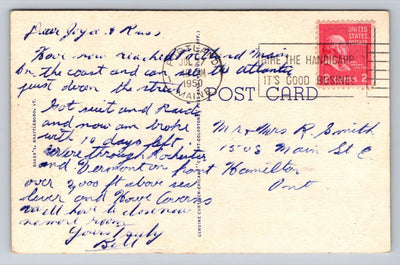 Dear Joyce & Russ
Have now reached Portland Maine
on the coast and can see the Atlantic
just down the street.
Got suit and
and now am broke
with 10 days left.
through Rochester
and Vermont on
over 2,000 ft above sea
level and Howe Caverns
will have to close now
no more room.
Yours truly
Bill
PORTLAND
JUL
PM
1950
MAINE
HIRE THE HANDICAPPED
IT'S GOOD BUSINESS
UNITED STATES POSTAGE
2
POST CARD
Mr & Mrs R. Smith
1508 Main St E
Hamilton
Ont